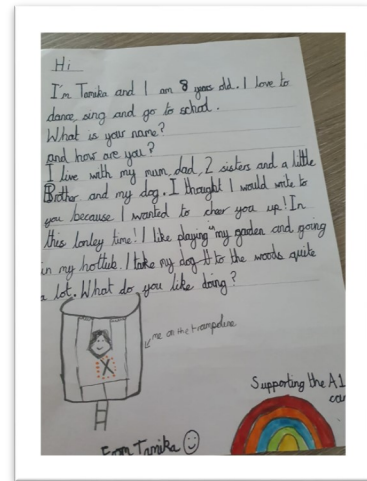 Hi
I'm Tamika and I am 8 years old. I love to
dance, sing and go to school.
What is your name?
and how are you?
I live with my mum, dad, 2 sisters and a little
Brother and my dog. I thought I would write to
you because I wanted to cher you up! In
this lonley time! I like playing my garden and going
in my hottub. I take my dog to the woods quite
a lot. What do you like doing?
me on the trampoline
Supporting the A1
From Tamika